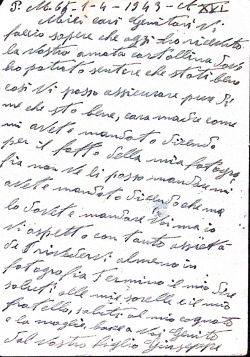 P. M. 65 - 1 - 4 - 1943 - A XXI
Miei cari Genitori Vi
faccio sapere che oggi ho ricevuto
la vostra amata cartollina dove
ho potuto sentere che stati bene
cosi Vi posso assicurare pure di
me che sto bene, cara madre come
mi avete mandato dicendo
per il fatto della mia fotogra
fia non ve li posso mandare mi
avete mandato dicendo che me
lo dovete mandare Voi ma io
Vi aspetto con tanto ansietà
de rivedervi almeno in
fotografia termino il mio dire
saluti alle mie sorelle e il mio
fratello, saluti al mio cognato
e la moglie baci a Voi Genito
dal Vostro figlio Giuseppe